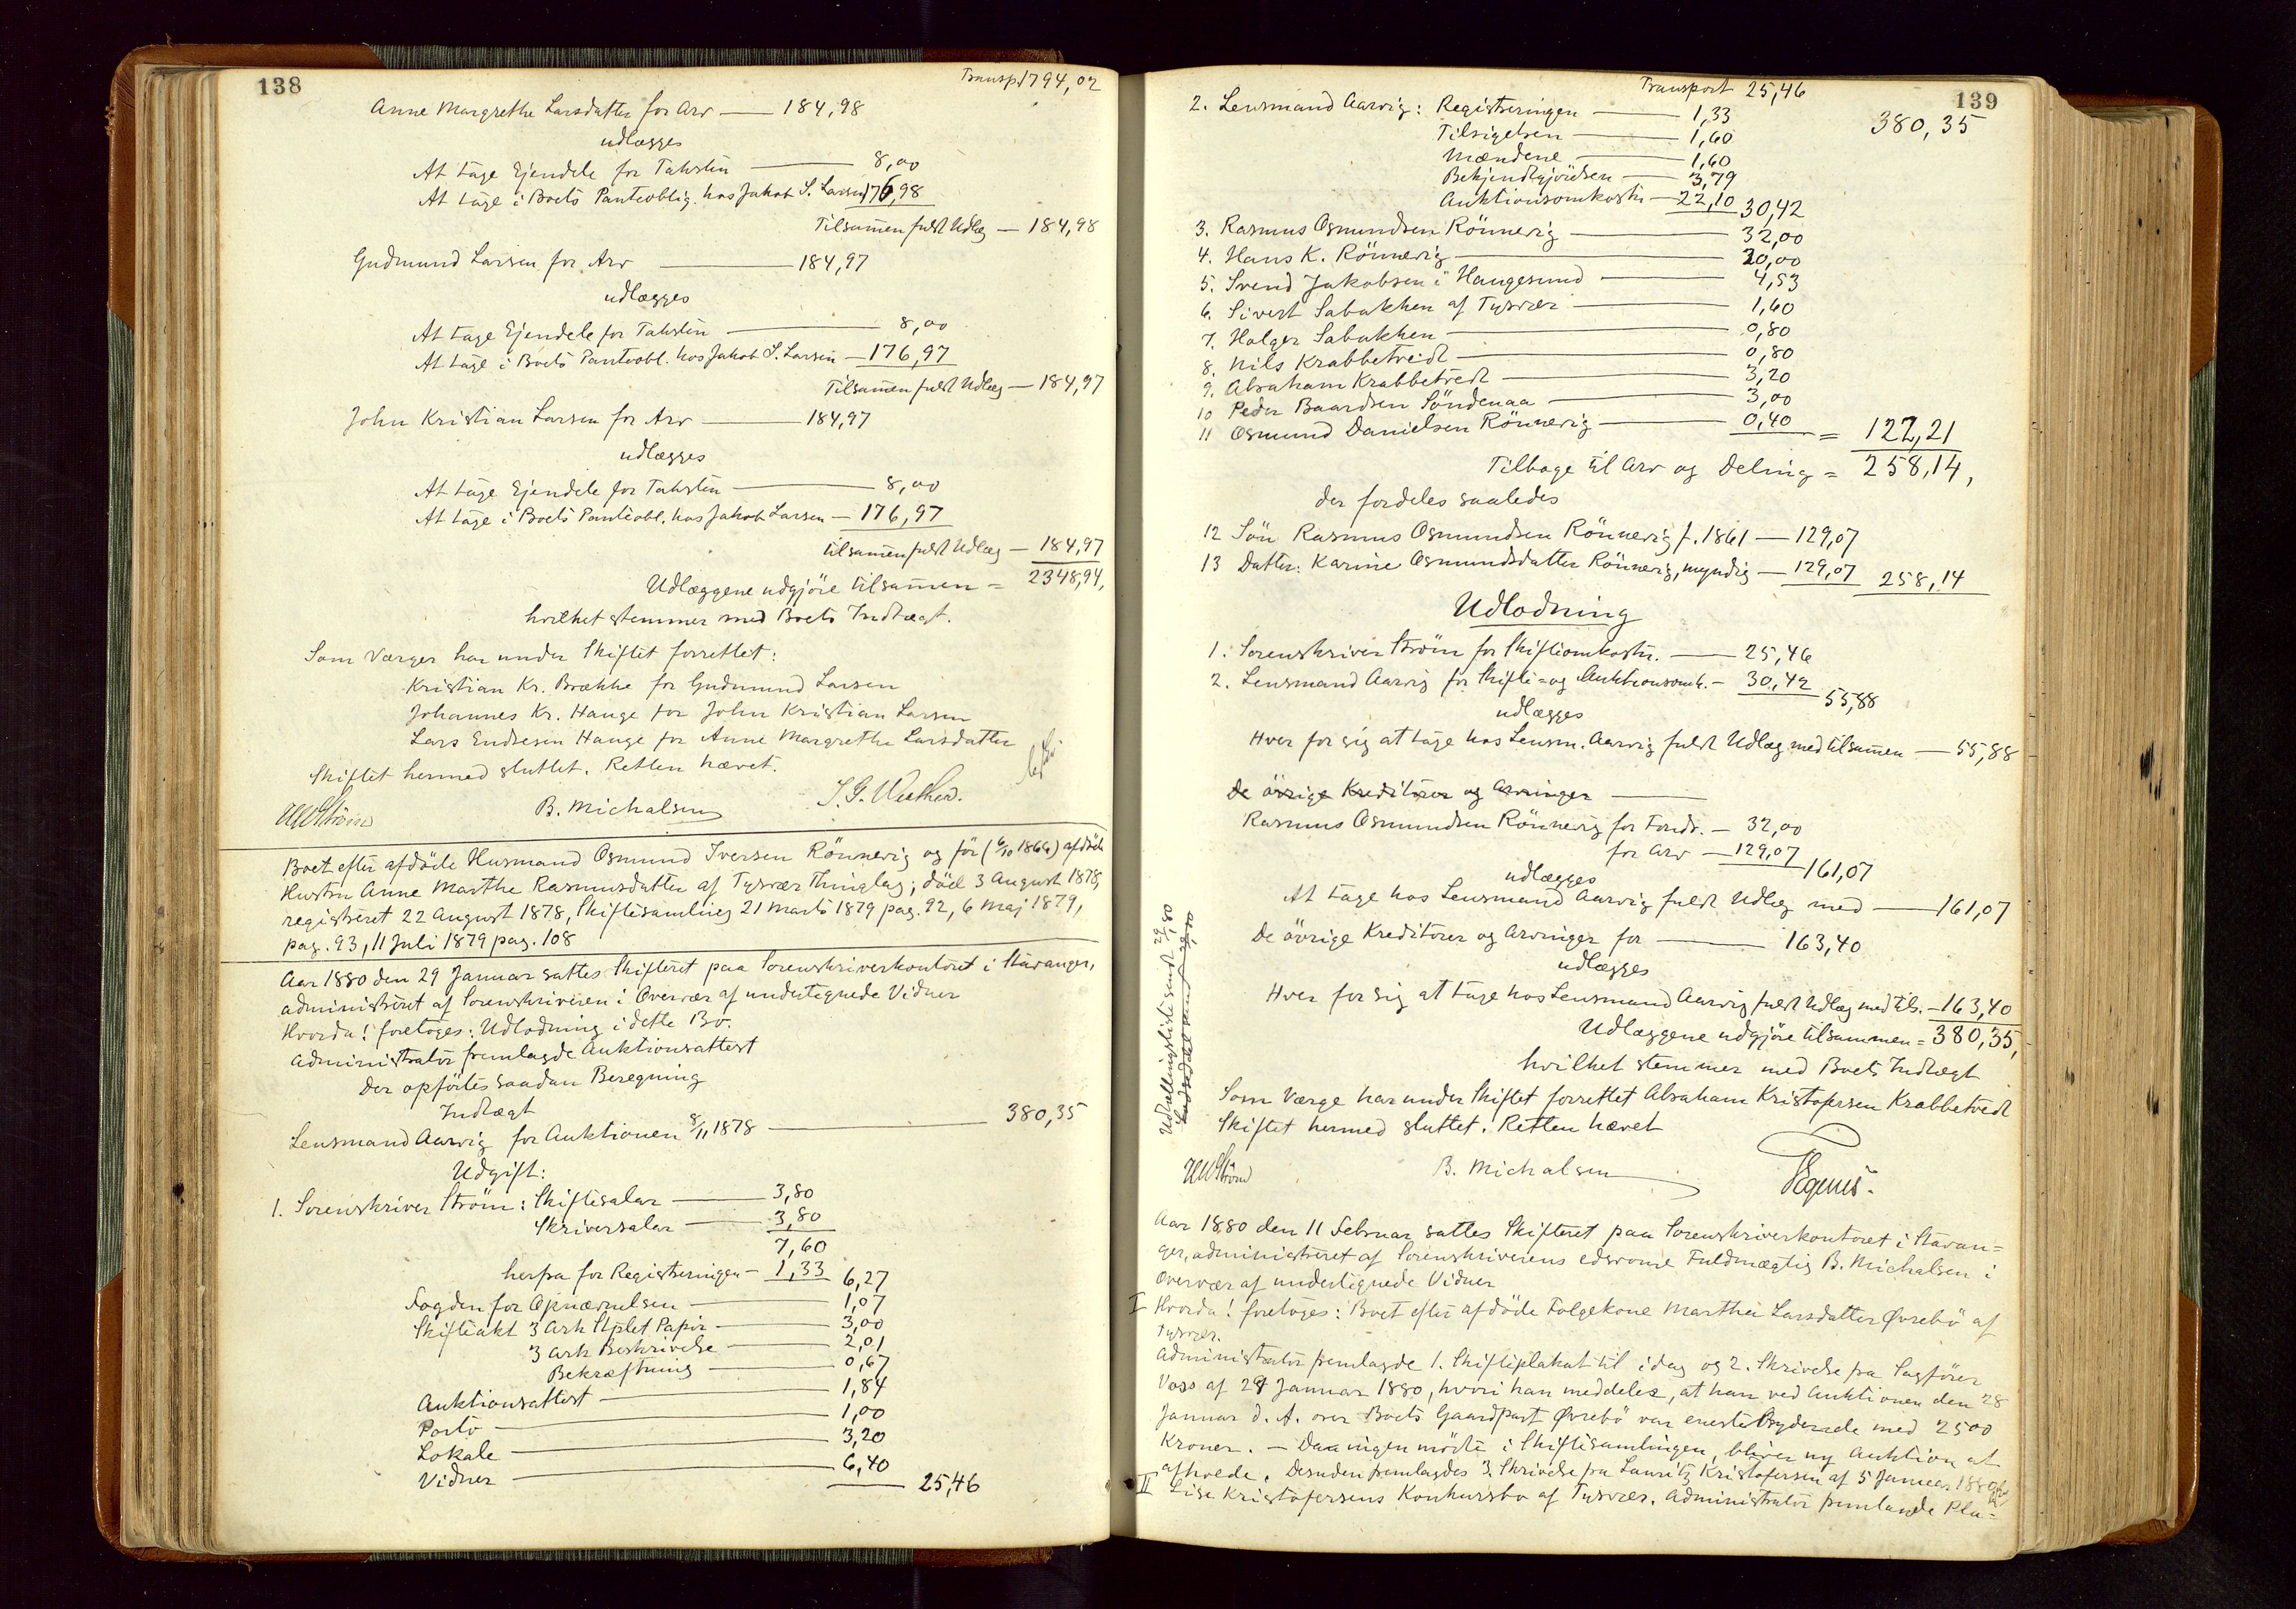 138
Transp. 1794,02
Anne Margrethe Larsdatter for Arv — 184,98
udlægges
At tage Ejendele for Taksten — 8,00
At tage i Boets Panteoblig. hos Jakob S. Larsen 176,98
Tilsammen fuldt Udlæg — 184,98
Gudmund Larsen for Arv — 184,97
udlægges
At tage Ejendele for Taksten — 8,00
At tage i Boets Panteobl. hos Jakob S. Larsen — 176,97
Tilsammen fuldt Udlæg — 184,97
John Kristian Larsen for Arv — 184,97
udlægges
At tage Ejendele for Taksten — 8,00
At tage i Boets Panteobl. hos Jakob Larsen — 176,97
tilsammen fuldt Udlæg — 184,97
Udlæggene udgjøre tilsammen = 2348,94,
hvilket stemmer med Boets Indtægt.
Som Værger har under Skiftet forrettet:
Kristian Kr. Brække for Gudmund Larsen
Johannes Kr. Hauge for John Kristian Larsen
Lars Endresen Hauge for Anne Margrethe Larsdatter
Skiftet hermed sluttet. Retten hævet.
B. Michalsen
Boet efter afdöde Husmand Osmund Iversen Rönnevig og för (6/10 1866) afdöde
Hustru Anne Marthe Rasmusdatter af Tysvær Thinglag; död 3 August 1878,
registreret 22 August 1878, Skiftesamling 21 Marts 1879 pag. 92, 6 Maj 1879,
pag. 93, 11 Juli 1879 pag. 108
Aar 1880 den 29 Januar sattes Skifteret paa Sorenskriverkontoret i Stavanger,
administreret af Sorenskriveren i Overvær af undertegnede Vidner
Hvorda! foretoges: Udlodning i dette Bo.
Administrator fremlagde Auktionsattest
Der opförtes saadan Beregning
Indtægt
Lensmand Aarvig for Auktionen 8/11 1878 — 380,35
Udgift:
1. Sorenskriver Ström: Skiftesalar — 3,80
Skriversalar — 3,80
7,60
herfra for Registreringen — 1,33 6,27
Fogden for Opnævnelsen — 1,07
Skifteakt 3 Ark Stplet Papir — 3,00
3 Ark Beskrivelse — 2,01
Bekræftning — 0,67
Auktionsattest — 1,84
Porto — 1,00
Lokale — 3,20
Vidner — 6,40
25,46
139
Transport 25,46
380,35
2. Lensmand Aarvig: Registreringen — 1,33
Tilsigelsen — 1,60
Mændene — 1,60
Bekjendtgjörelsen — 3,79
Auktionsomkostn — 22,10 30,42
3. Rasmus Osmundsen Rönnevig — 32,00
4. Hans K. Rönnevig — 20,00
5. Svend Jakobsen i Haugesund — 4,53
6. Sivert Sabukken af Tysvær — 1,60
7. Holger Sabukken — 0,80
8. Nils Krabbetveidt — 0,80
9. Abraham Krabbetvedt — 3,20
10 Peder Baardsen Söndenaa — 3,00
11 Osmund Danielsen Rönnevig — 0,40 = 122,21
Tilbage til Arv og Deling = 258,14,
der fordeles saaledes
12 Sön Rasmus Osmundsen Rönnevig f. 1861 — 129,07
13 Datter: Karine Osmundsdatter Rönnevig, myndig — 129,07 258,14
Udlodning
1. Sorenskriver Ström for Skifteomkostn. — 25,46
2. Lensmand Aarvig for Skifte= og Auktionsomk. — 30,42 55,88
udlægges
Hver for sig at tage hos Lensm. Aarvig fuldt Udlæg med tilsammen — 55,88
De övrige Kreditorer og Arvinger —
Rasmus Osmundsen Rönnevig for Fordr. — 32,00
for Arv — 129,07 161,07
udlægges
At tage hos Lensmand Aarvig fuldt Udlæg med — 161,07
De övrige Kreditorer og Arvinger for — 163,40
udlægges
Hver for sig at tage hos Lensmand Aarvig fuldt Udlæg med tils. — 163,40
Udlæggene udgjöre tilsammen = 380,35,
hvilket stemmer med Boets Indtægt
Som Værge har under Skiftet forrettet Abraham Kristofersen Krabbetvedt
Skiftet hermed sluttet. Retten hævet
B. Michalsen
Aar 1880 den 11 Februar sattes Skifteret paa Sorenskriverkontoret i Stavan=
ger, administreret af Sorenskriverens edsvorne Fuldmægtig B. Michalsen i
Overvær af undertegnede Vidner
I Hvorda! foretoges: Boet efter afdöde Folgekone Marthe Larsdatter Øvrebö af
Tysvær.
Administrator fremlagde 1. Skifteplakat til idag og 2. Skrivelse fra Sagförer
Voss af 28 Januar 1880, hvori han meddeler, at han ved Auktionen den 28
Januar d. A. over Boets Gaardpart Øvrebö var eneste bydende med 2500
Kroner. — Da ingen mödte i Skiftesamlingen, bliver ny Auktion at
afholde. Desuden fremlagdes 3. Skrivelse fra Lauritz Kristofersen af 5 Januar 1880
II Lise Kristofersens Konkursbo af Tysvær. Administrator fremlagde Pla=